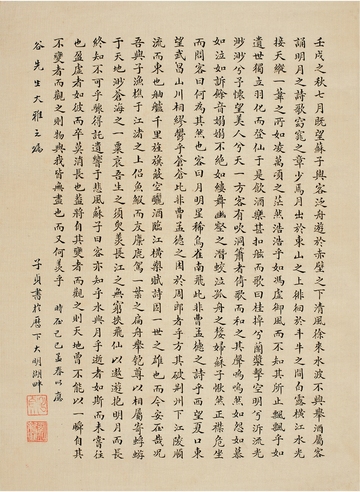 壬戌之秋七月既望蘇子與客泛舟遊於赤壁之下清風徐來水波不興舉酒屬客
誦明月之詩歌窈窕之章少焉月出於東山之上徘徊於斗牛之間白露橫江水光
接天縱一葦之所如凌萬頃之茫然浩浩乎如馮虛御風而不知其所止飄飄乎如
遺世獨立羽化而登仙于是飲酒樂甚扣舷而歌曰桂棹兮蘭槳擊空明兮泝流光
渺渺兮予懷望美人兮天一方客有吹洞簫者倚歌而和之其聲嗚嗚然如怨如慕
如泣如訴餘音嫋嫋不絕如縷舞幽壑之潛蛟泣孤舟之嫠婦蘇子愀然正襟危坐
而問客曰何為其然也客曰月明星稀烏鵲南飛此非曹孟德之詩乎西望夏口東
望武昌山川相繆鬱乎蒼蒼此非曹孟德之困於周郎者乎方其破荊州下江陵順
流而東也舳艫千里旌旗蔽空釃酒臨江橫槊賦詩固一世之雄也而今安在哉況
吾與子漁樵于江渚之上侶魚鰕而友麋鹿駕一葉之扁舟舉匏尊以相屬寄蜉蝣
于天地渺蒼海之一粟哀吾生之須臾羨長江之無窮挾飛仙以遨遊抱明月而長
終知不可乎驟得託遺響于悲風蘇子曰客亦知乎水與月乎逝者如斯而未嘗往
也盈虛者如彼而卒莫消長也蓋將自其變者而觀之則天地曾不能以一瞬自其
不變者而觀之則物與我皆無盡也而又何羨乎 時在乙巳孟春以應
谷先生大雅之屬 子貞書於歷下大明湖畔